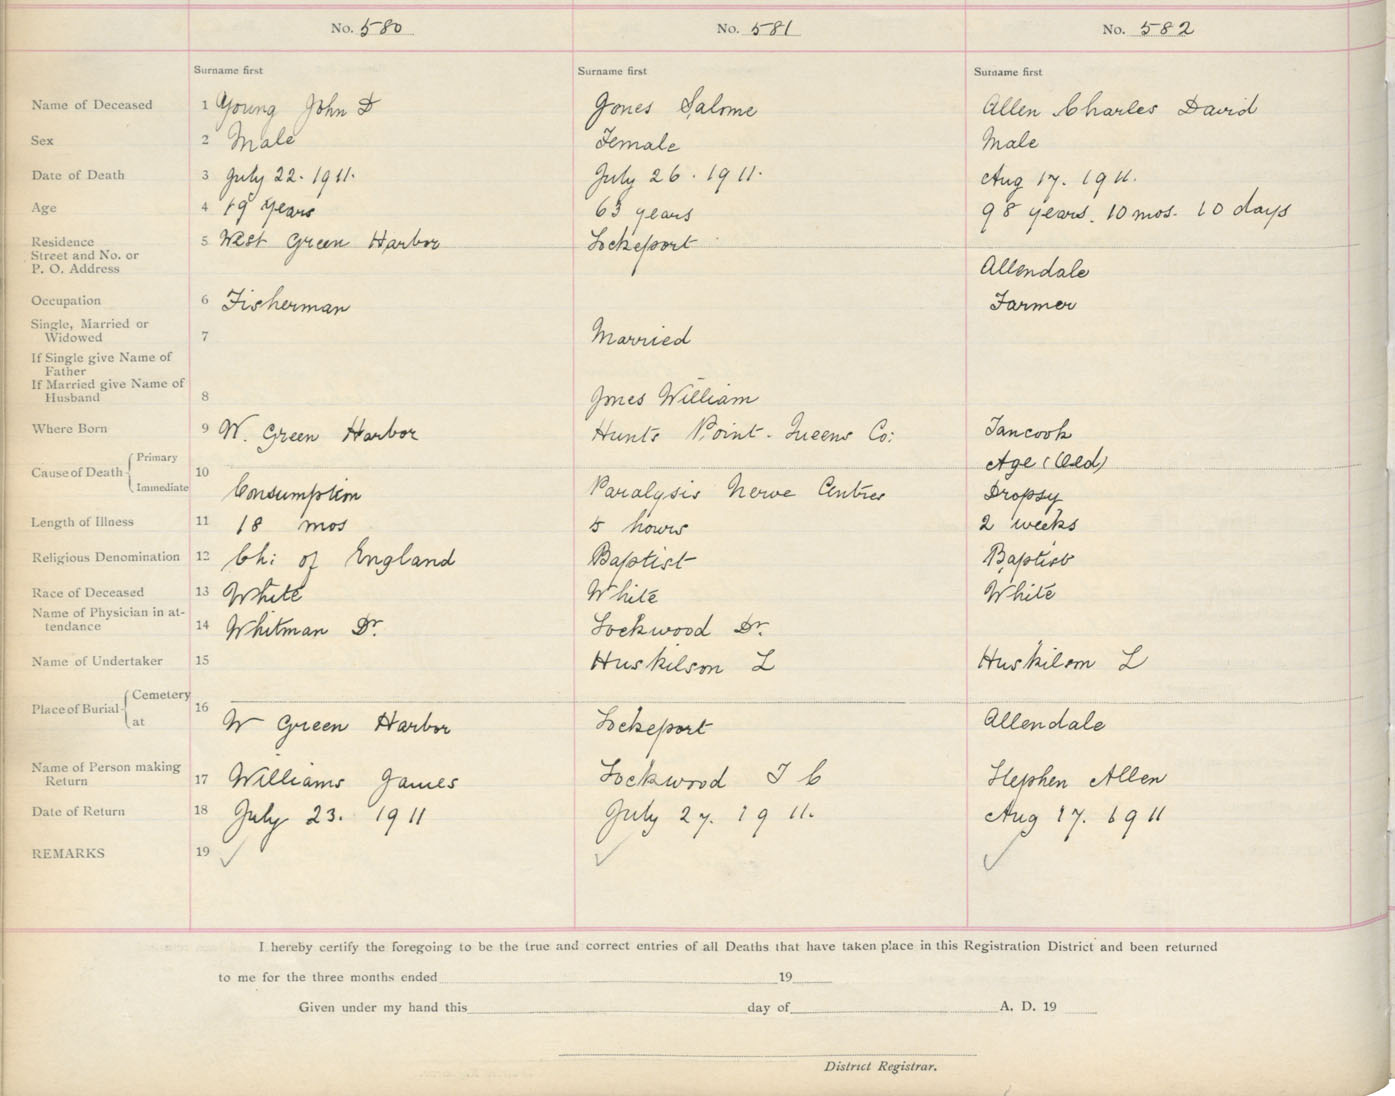 No. 580 No. 581 No. 582
Surname first Surname first Surname first
Name of Deceased 1 Young John D Jones Salome Allen Charles David
Sex 2 Male Female Male
Date of Death 3 July 22. 1911. July 26. 1911. Aug 17. 1911.
Age 4 19 years 63 years 98 years. 10 mos. 10 days
Residence 5 West Green Harbor Lockeport
Street and No. or
P. O. Address Allendale
Occupation 6 Fisherman Farmer
Single, Married or
Widowed 7 Married
If Single give Name of
Father
If Married give Name of
Husband 8 Jones William
Where Born 9 W. Green Harbor Hunts Point. Queens Co: Tancook
Primary Age (Old)
Cause of Death 10
Immediate Consumption Paralysis Nerve Centres Dropsy
Length of Illness 11 18 mos 5 hours 2 weeks
Religious Denomination 12 Ch: of England Baptist Baptist
Race of Deceased 13 White White White
Name of Physician in at-
tendance 14 Whitman Dr. Lockwood Dr.
Name of Undertaker 15 Huskilson L Huskilson L
Cemetery
Place of Burial 16
at W Green Harbor Lockeport Allendale
Name of Person making
Return 17 Williams James Lockwood T C Stephen Allen
Date of Return 18 July 23. 1911 July 27. 1911. Aug 17. 1911
REMARKS 19 ✓ ✓ ✓
I hereby certify the foregoing to be the true and correct entries of all Deaths that have taken place in this Registration District and been returned
to me for the three months ended 19
Given under my hand this day of A. D. 19
District Registrar.